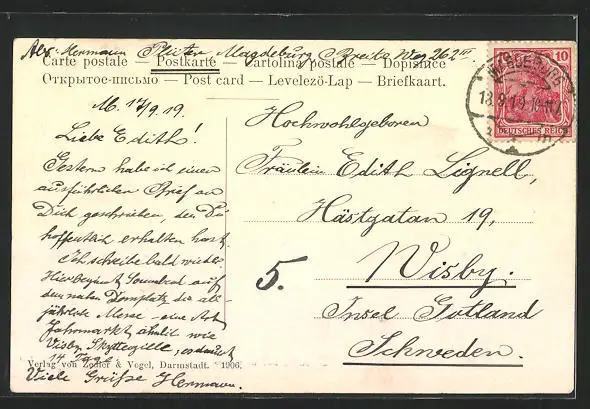 Abs. Hermann Plüter Magdeburg Breite Weg 262 III
Carte postale — Postkarte — Cartolina postale — Dopisnice
Открытое-письмо — Post card — Levelező-Lap — Briefkaart.
M. 17/9.19.
Liebe Edith!
Gestern habe ich einen
ausführlichen Brief an
Dich geschrieben, den Du
hoffentlich erhalten hast.
Ich schreibe bald wieder.
Hier beginnt Sonnabend auf
dem nahen Domplatz die all-
jährliche Messe – eine Art
Jahrmarkt ähnlich wie
Visby Skyttegille, es dauert
14 Tage.
Viele Grüße Hermann.
Verlag von Zedler & Vogel, Darmstadt. 1906.
Hochwohlgeboren
Fräulein Edith Lignell,
Hästgatan 19,
5.
Wisby.
Insel Gotland
Schweden.
10
MAGDEBURG
18.9.19.
DEUTSCHES REICH